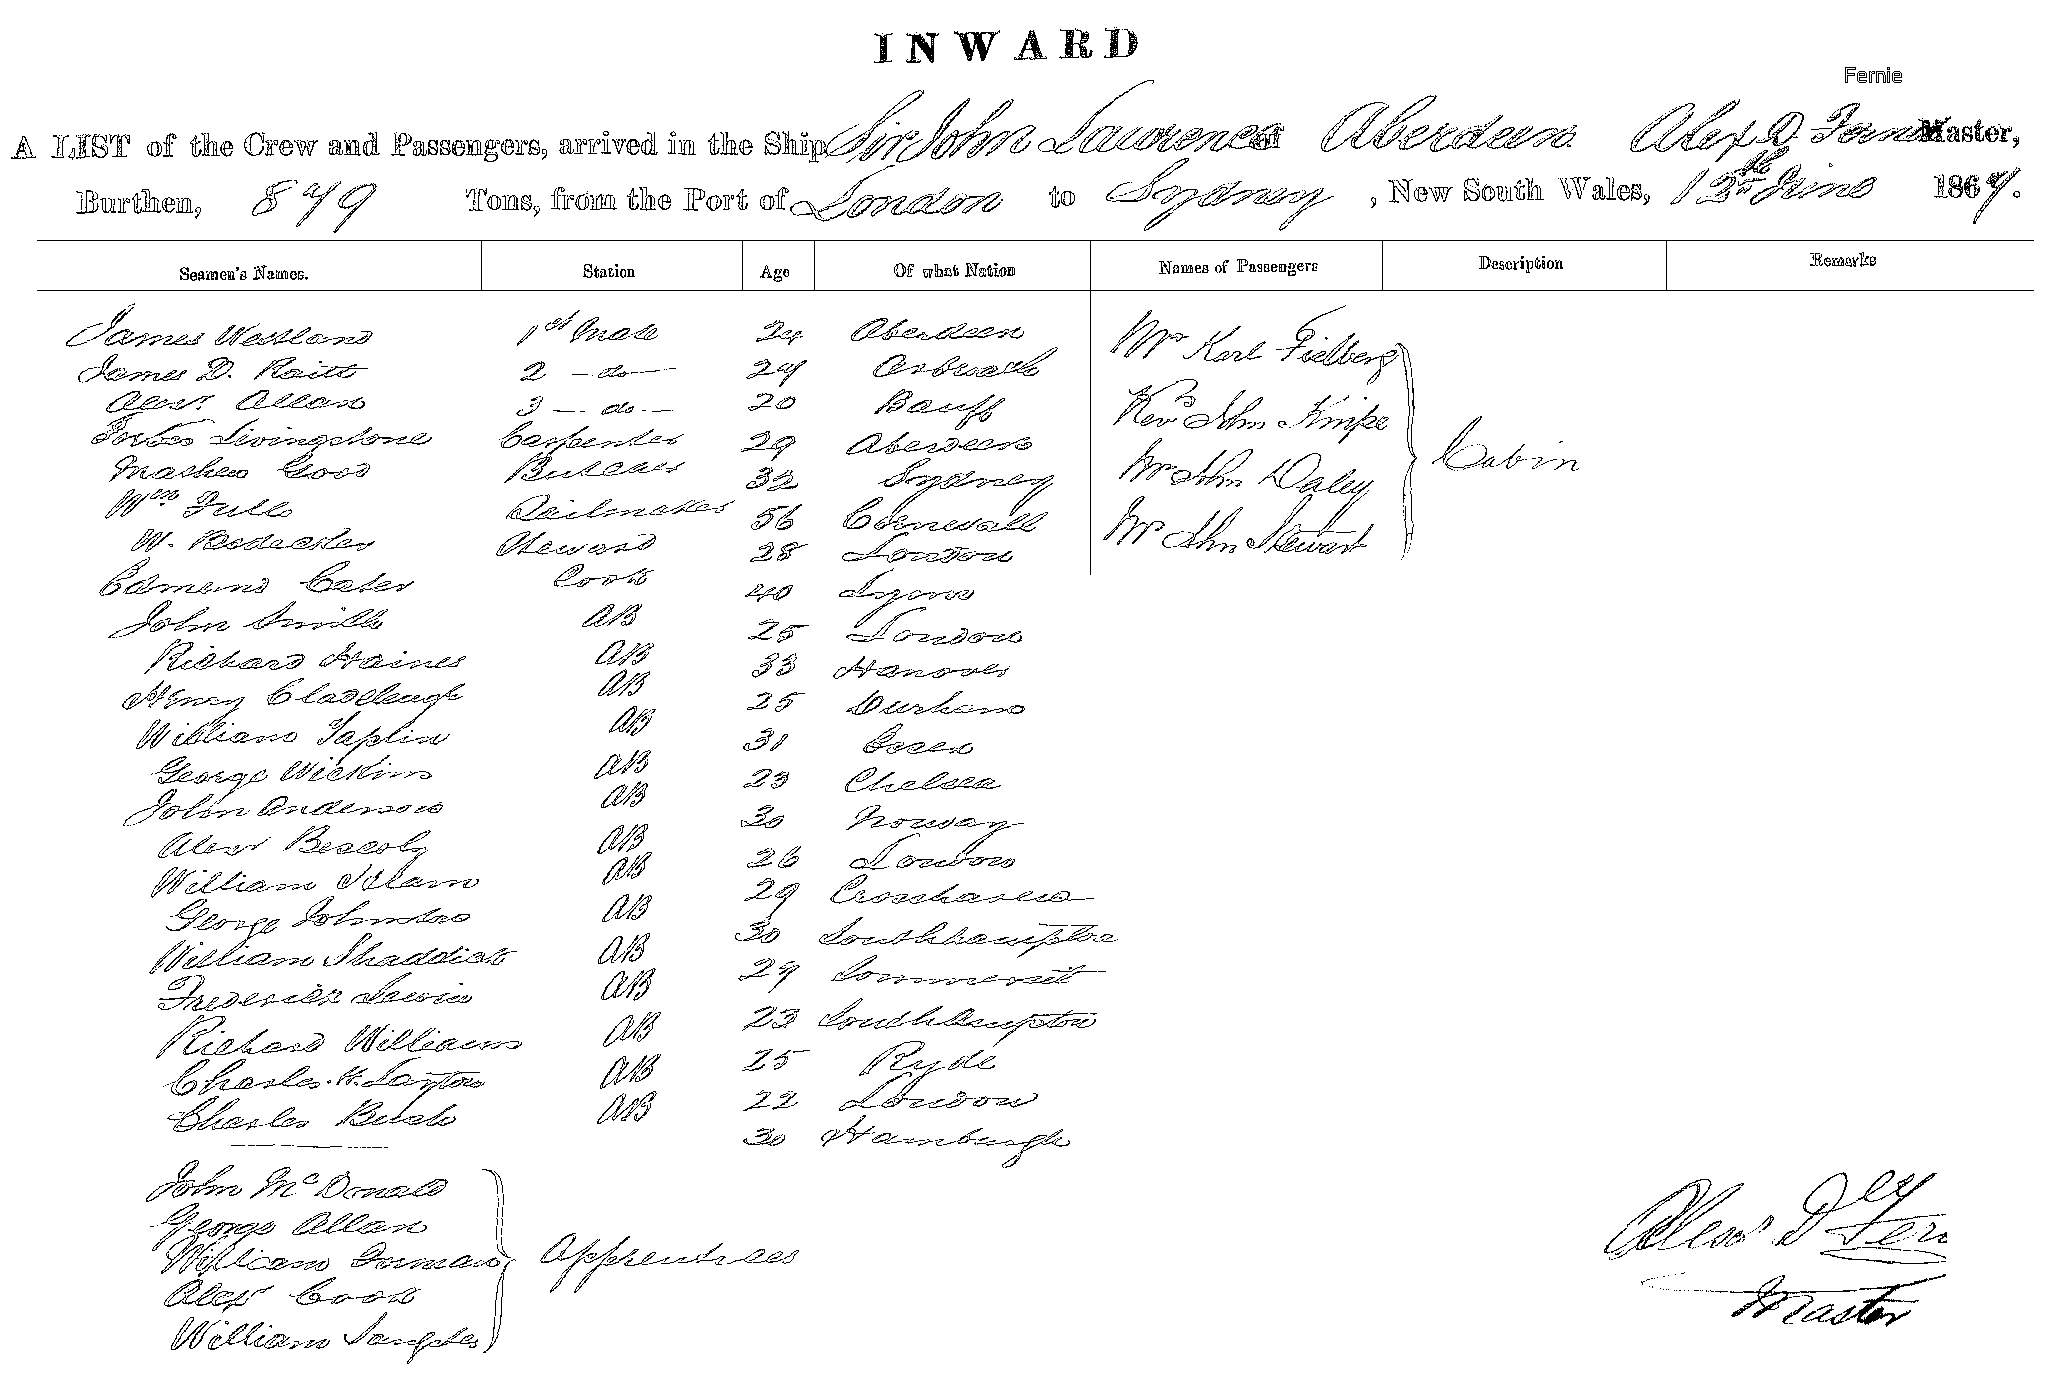 INWARD
Fernie
A LIST of the Crew and Passengers, arrived in the Ship Sir John Lawrence of Aberdeen Alex D. Fernie Master,
Burthen, 849 Tons, from the Port of London to Sydney, New South Wales, 12th June 1869.
Seamen's Names. Station Age Of what Nation Names of Passengers Description Remarks
James Westland 1st Mate 24 Aberdeen Mr Karl Fielberg
James D. Raitt 2 - do - 24 Arbroath
Alexr. Allan 3 - do. - 20 Banff Revd John Kinipe
Forbes Livingstone Carpenter 29 Aberdeen Cabin
Mathew Good Butcher 32 Sydney Mr John Daley
Wm Tulle Sailmaker 56 Cornwall
W. Steward 28 London Mr John Stewart
Edmund Cater Cook 40 Lyons
John Smith AB 25 London
Richard Haines AB 33 Hanover
Henry AB 25 Durham
William Taplin AB 31 Essex
George Wickins AB 23 Chelsea
John Anderson AB 30 Norway
Alexr AB 26 London
William Islam AB 29 Crosshaven
George Johnston AB 30 Southhampton
William Shaddick AB 29 Sommerset
Frederick Lewin AB 23 Southhampton
Richard Williams AB 25 Ryde
Charles. H. Layton AB 22 London
Charles Bush AB 30 Hamburgh
John McDonald
George Allan
William Forman Apprentices
Alexr Cook
William Sangster
Alexr D Fer
Master